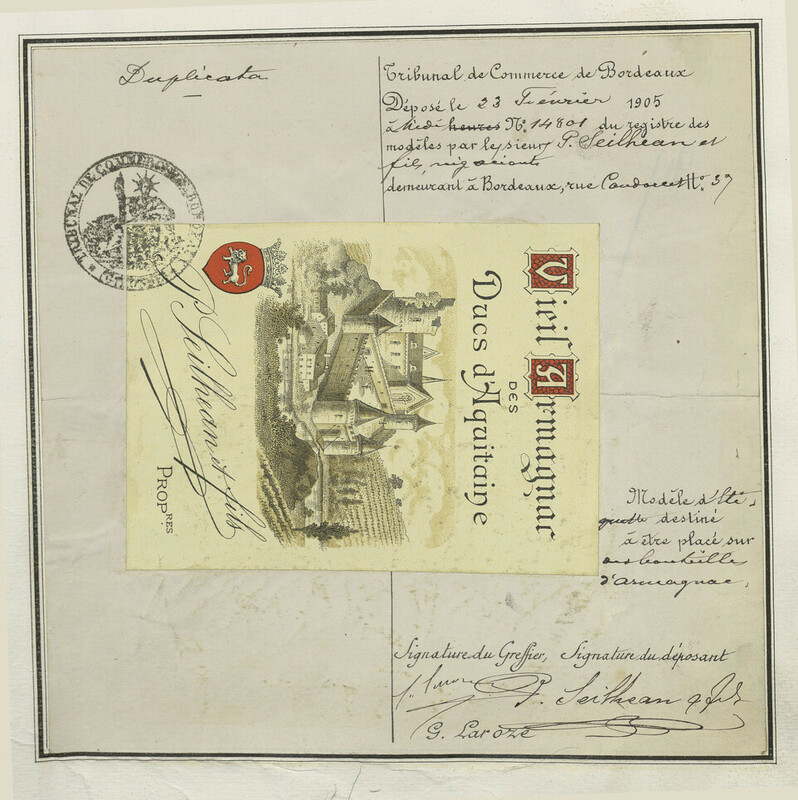 Duplicata
Tribunal de Commerce de Bordeaux
Déposé le 23 Février 1905
à Midi heures No. 14801 du registre des
modèles par le sieurs P. Seilhean et
fils, négociants
demeurant à Bordeaux, rue Condorcet No. 37
TRIBUNAL DE COMMERCE
Vieil Armagnac
DES
Ducs d'Aquitaine
P. Seilhean et fils
PROPRES
Modèle d'éti-
quette destiné
à être placé sur
des bouteille
d'armagnac,
Signature du Greffier, Signature du déposant
P. Seilhean & fils
G. Laroze